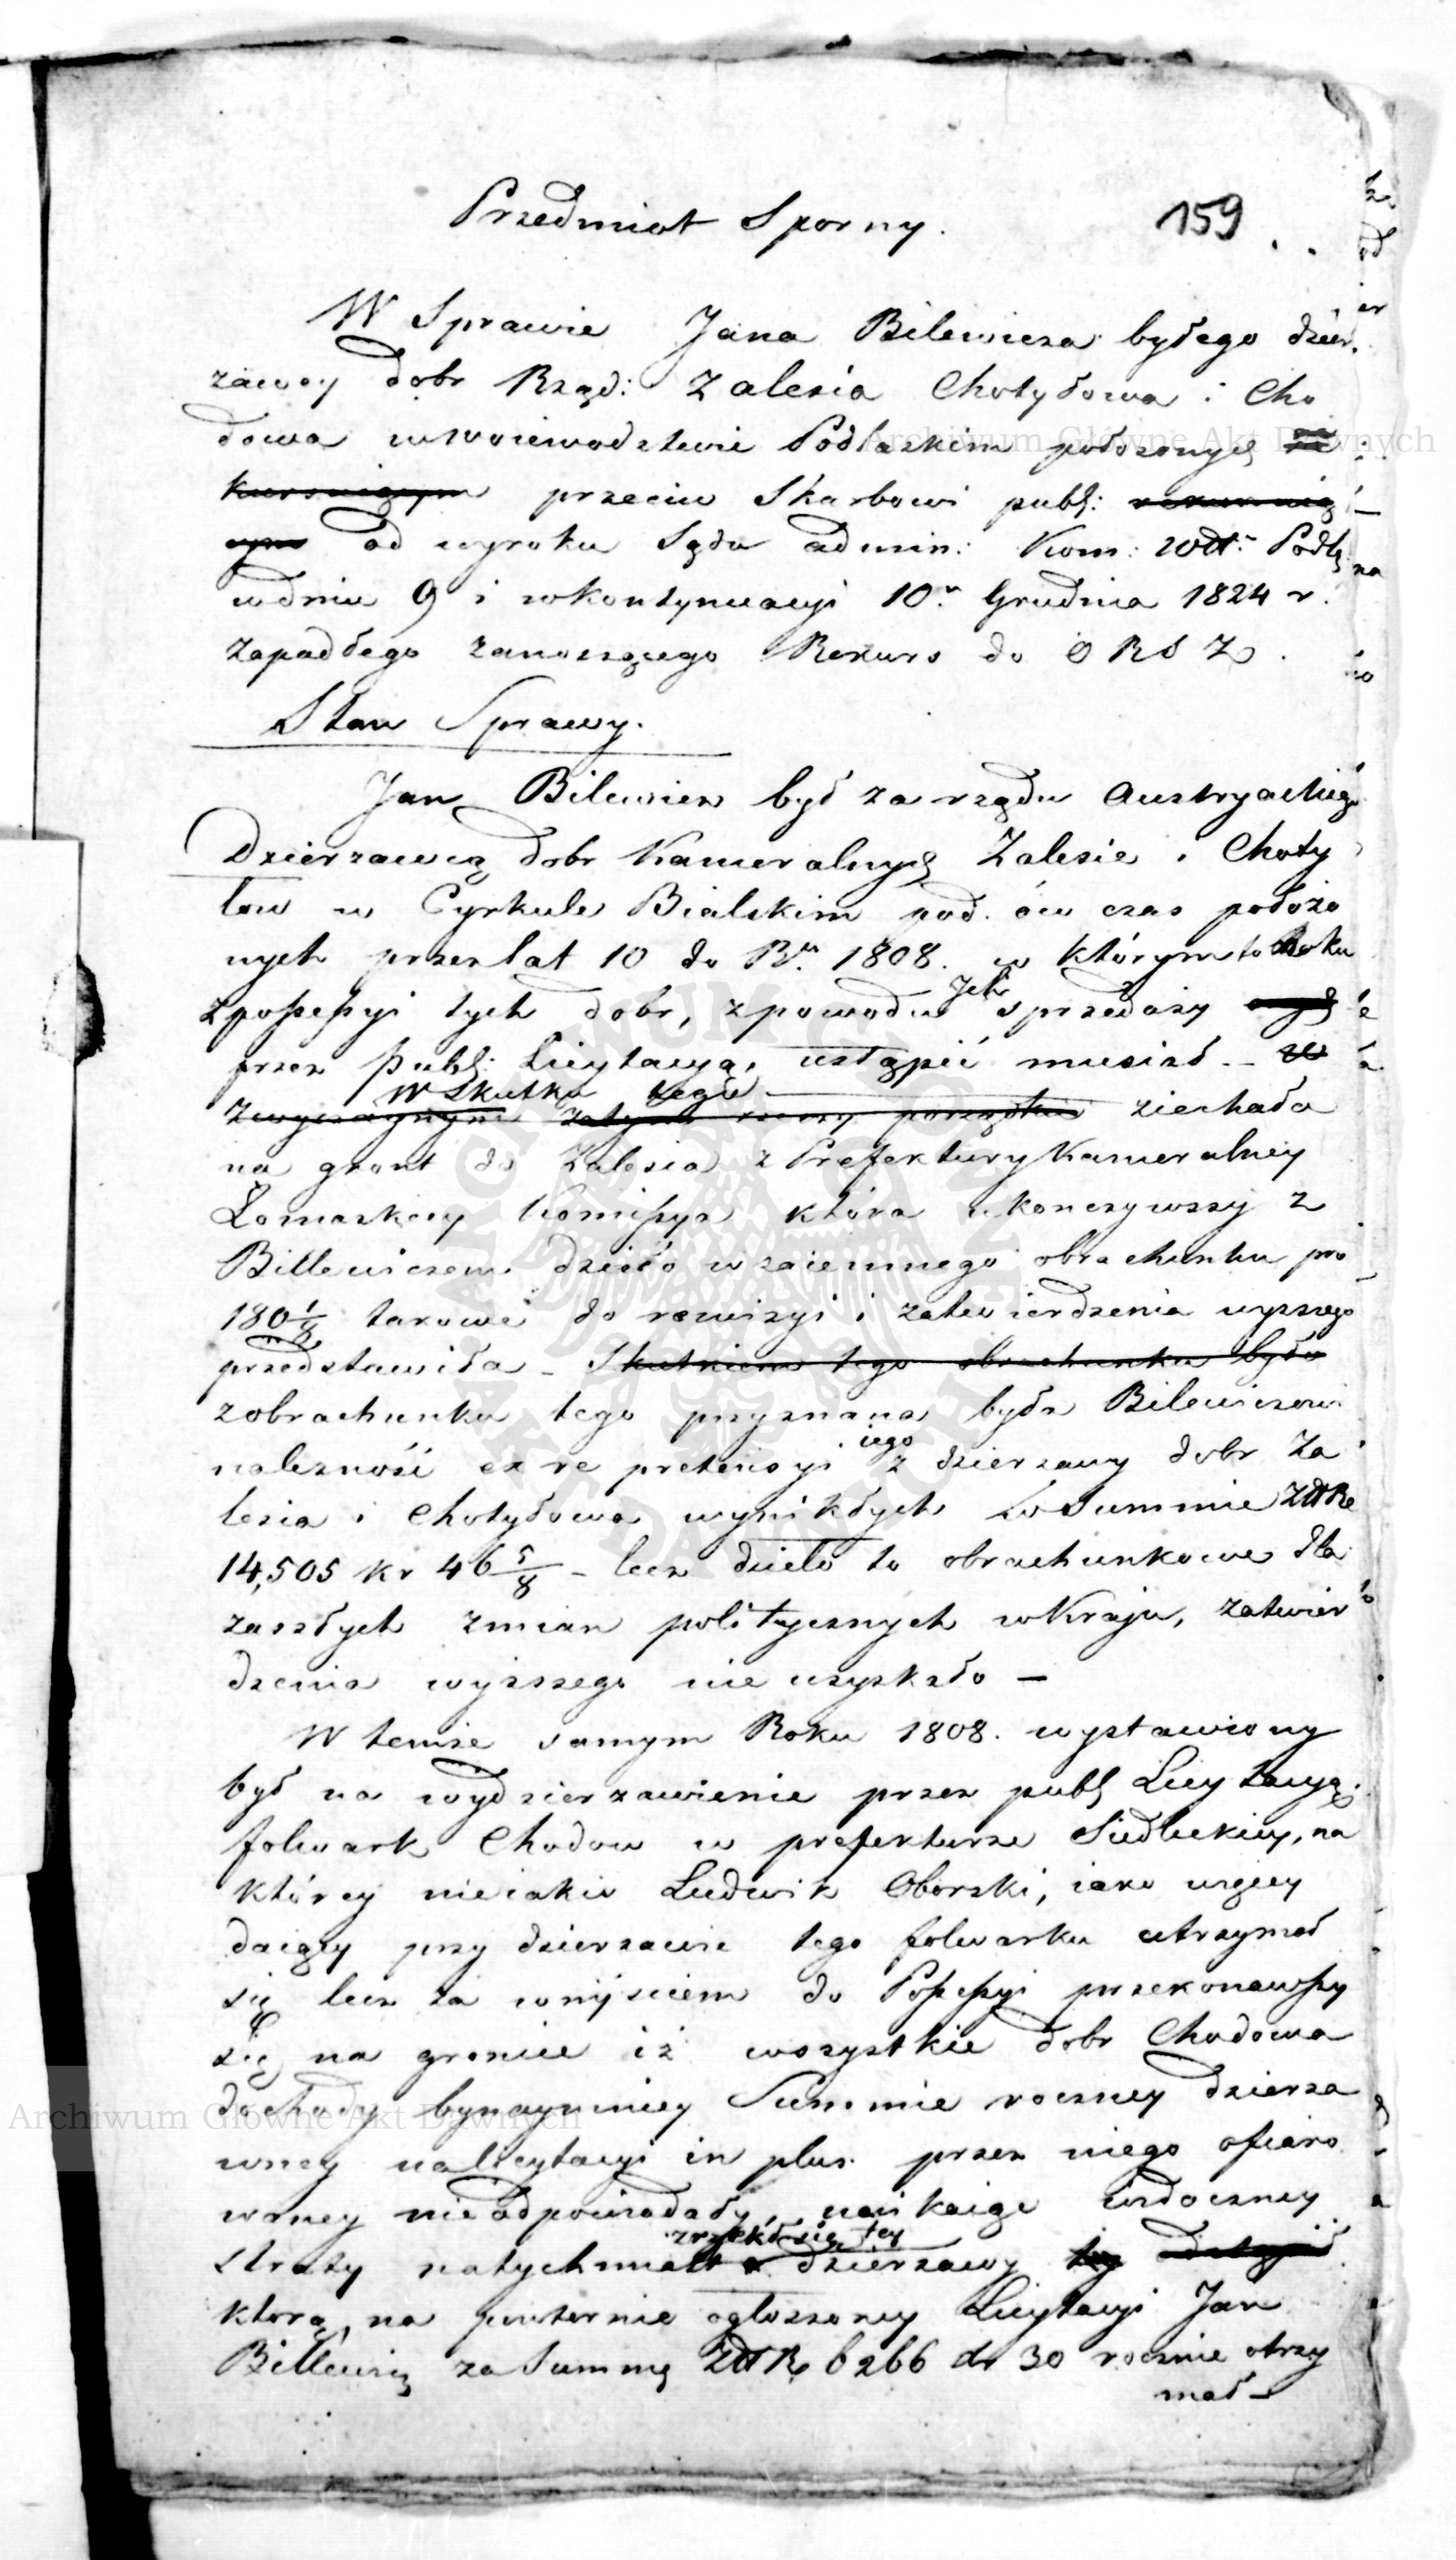 Przedmiot Sporny.
159
W Sprawie Jana Bilewicza byłego dzier.
zawcy dobr Rząd: Zalesia Chotyłowa i Cho
dowa w woiewodztwie Podlaskim położonych
przeciw Skarbowi publ:
od wyroku Sądu admin: Kom: Wdt: Podl:
w dniu 9 i w kontynuacyi 10. Grudnia 1824 r.
zapadłego zanoszącego Rekurs do O R S Z.
Stan Sprawy.
Jan Bilewicz był za rządu Austryackiego
Dzierzawcą dobr Kameralnych Zalesie i Choty
łow w Cyrkule Bialskim pod. ów czas położo
nych przez lat 10 do Ru. 1808. w którym to Roku
z possessyi tych dobr, z powodu Ich sprzedaży
przez publ: licytacyą, ustąpić musiał -
W Skutku tego
zwyczaynym zatym rzeczy porządku ziechała
na gront do Zalesia z Prefektury Kameralney
Łomaskiey Komissya która ukonczywszy z
Billewiczem dzieło wzaiemnego obrachunku pro
180 7/8 takowe do rewizyi i zatwierdzenia wyzszego
przedstawiła - Skutkiem tego obrachunku było
z obrachunku tego przyznana była Bilewiczowi
należność ex re pretensyi iego z dzierzawy dobr Za
lesia i Chotyłowa wynikłych w Summie ZłR
14,505 kr 46 5/8 - lecz dzieło to obrachunkowe dla
zaszłych zmian politycznych w Kraju, zatwier
dzenia wyższego nie uzyskało —
W temże samym Roku 1808. wystawiony
był na wydzierzawienie przez publ Licytacyą
folwark Chodow w prefekturze Siedleckiey, na
którey nieiakiś Ludwik Oborski, iako więcey
daiący przy dzierzawie tego folwarku utrzymał
się lecz za wnijściem do Possessyi przekonawszy
się na groncie iż wszystkie dobr Chodowa
dochody bynaymniey Summie roczney dzierza
wney na licytacyi in plus przez niego ofiaro
waney nieodpowiadały, unikaiąc widoczney
straty natychmiast zrzekł się tey dzierzawy
którą na powtornie ogłoszoney Licytacyi Jan
Billewicz za Summę ZłR 6266 kr 30 rocznie otrzy
mał -